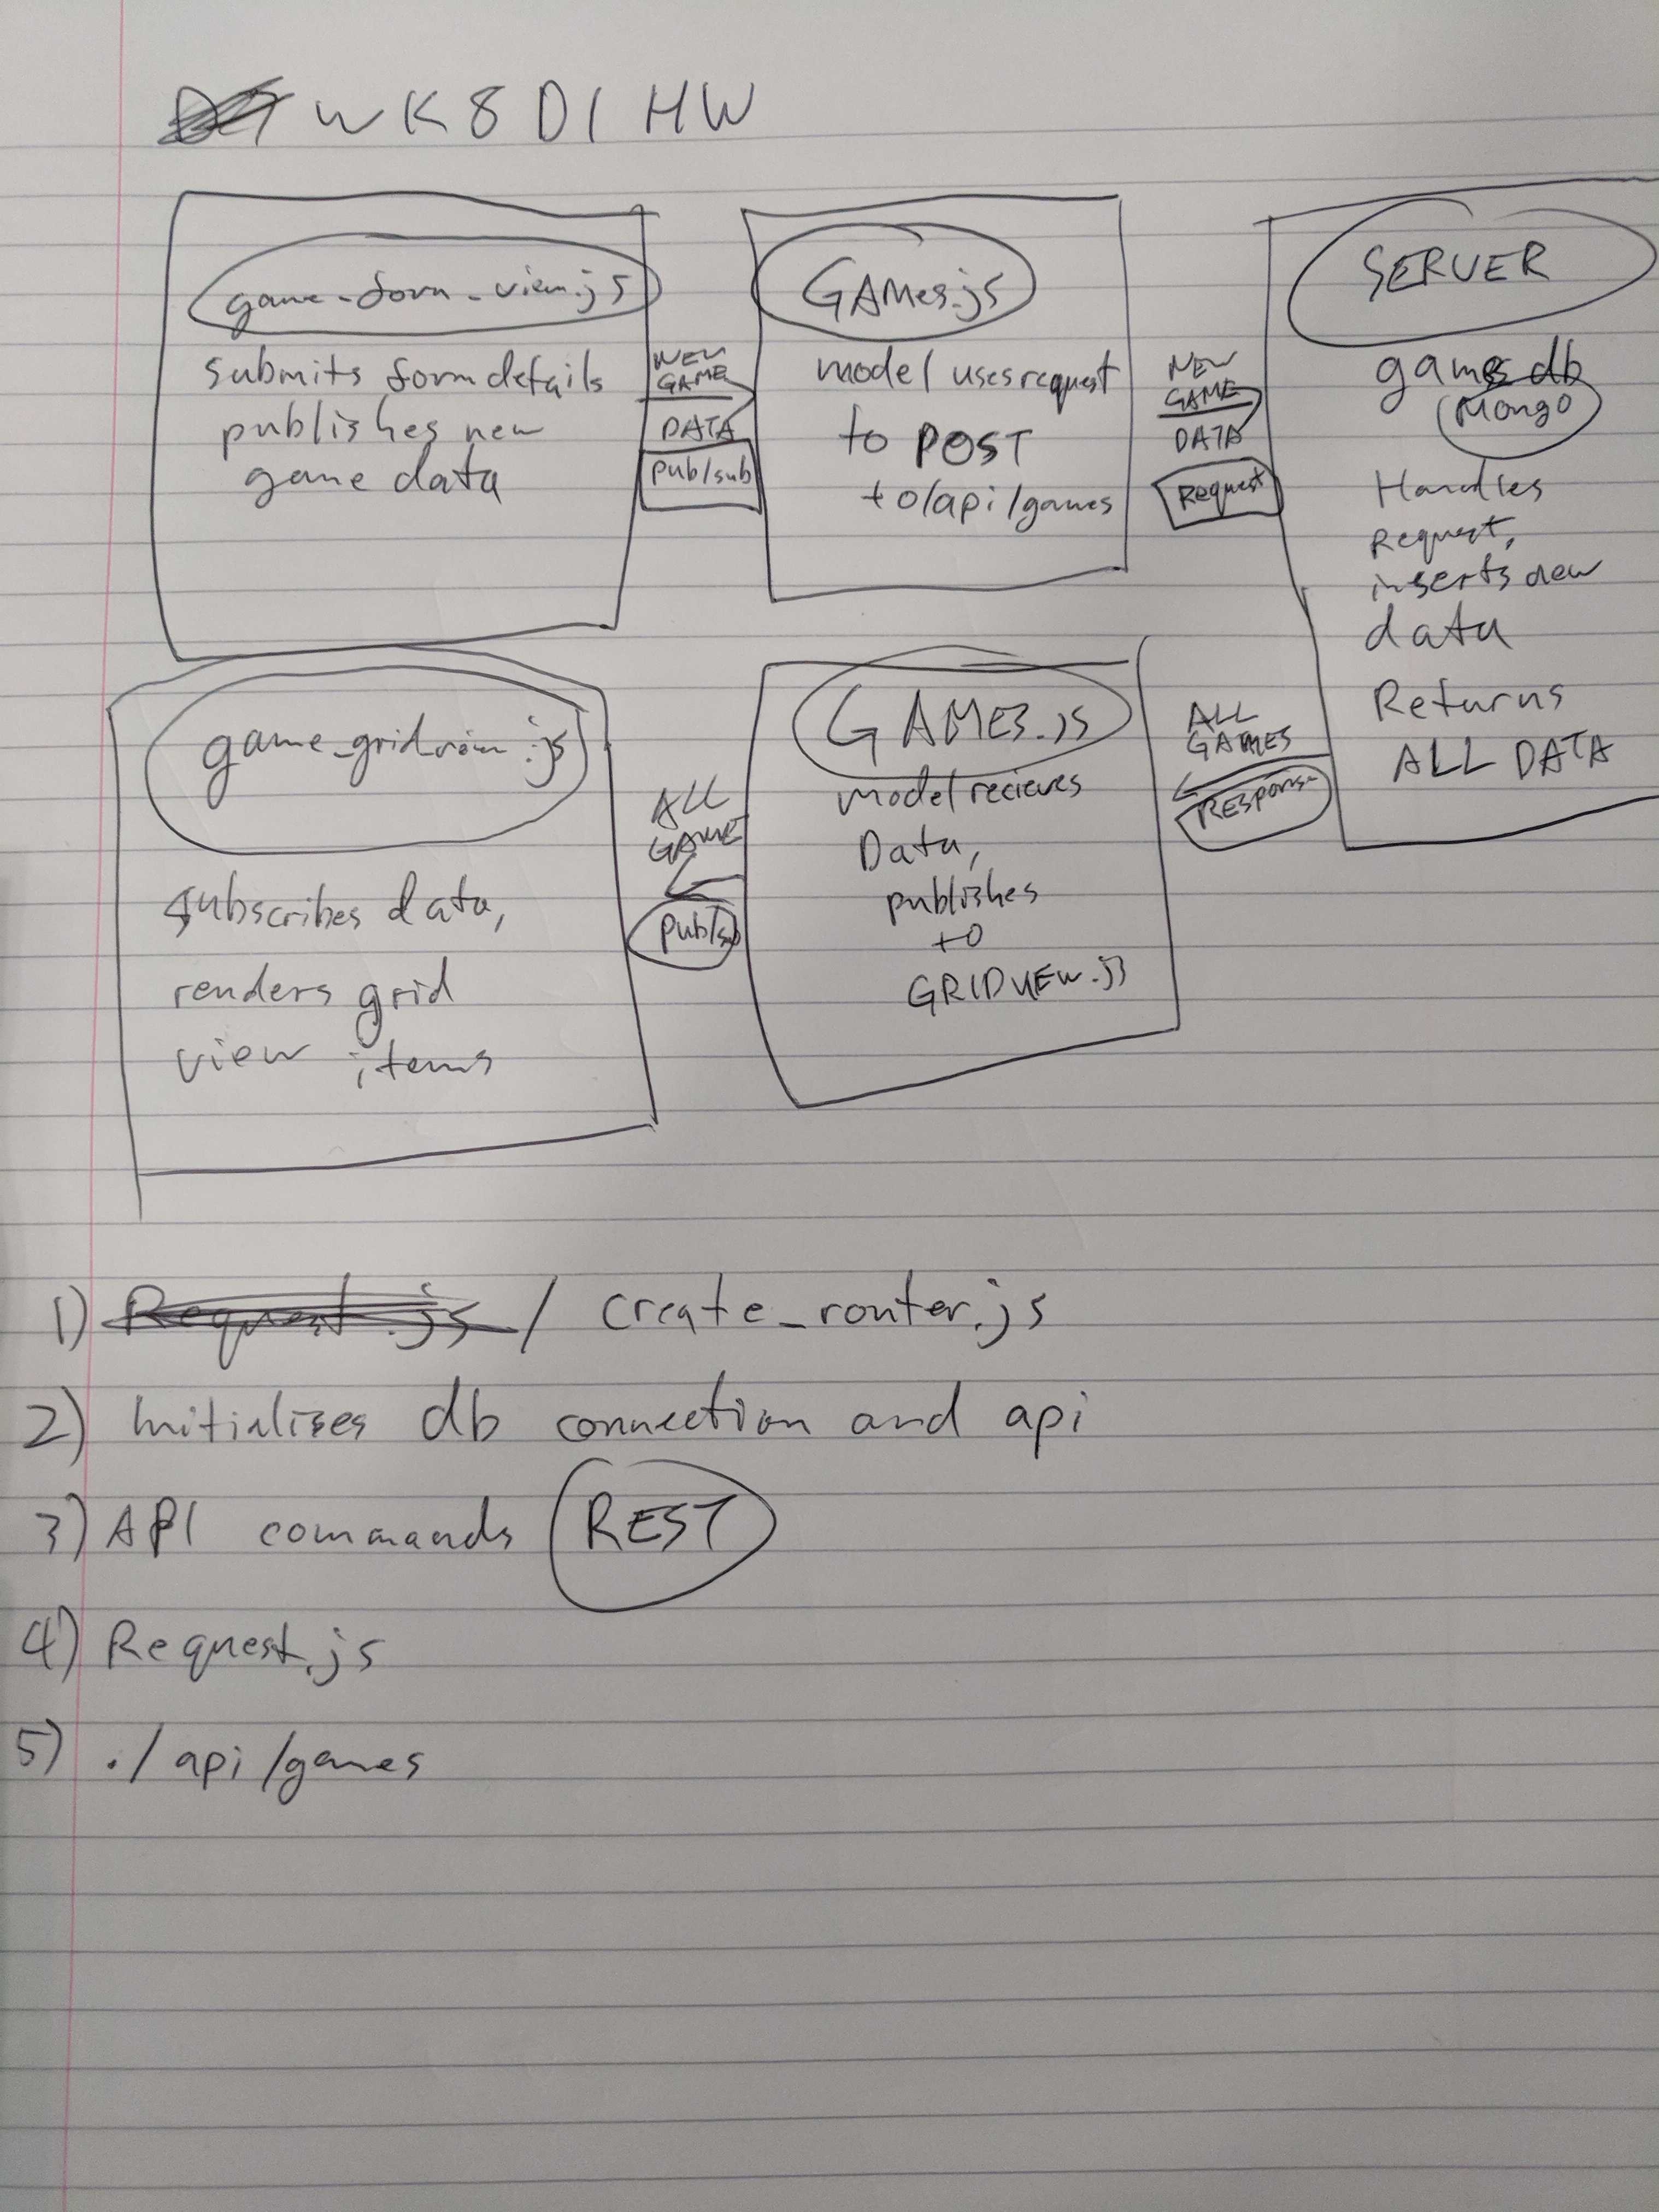 WK8 D1 HW
game_form_view.js
submits form details
publishes new
game data
NEW
GAME
DATA
pub/sub
GAMes.js
model uses request
to POST
to/api/games
NEW
GAME
DATA
Request
SERVER
games db
Mongo
Handles
Request,
inserts new
data
Returns
ALL DATA
game_gridview.js
subscribes data,
renders grid
view items
ALL
GAME
pub/sub
GAMES.js
model recieves
Data,
publishes
to
GRIDVIEW.js
ALL
GAMES
Response
1) Request.js / create_router.js
2) Initialises db connection and api
3) API commands REST
4) Request.js
5) ./api/games